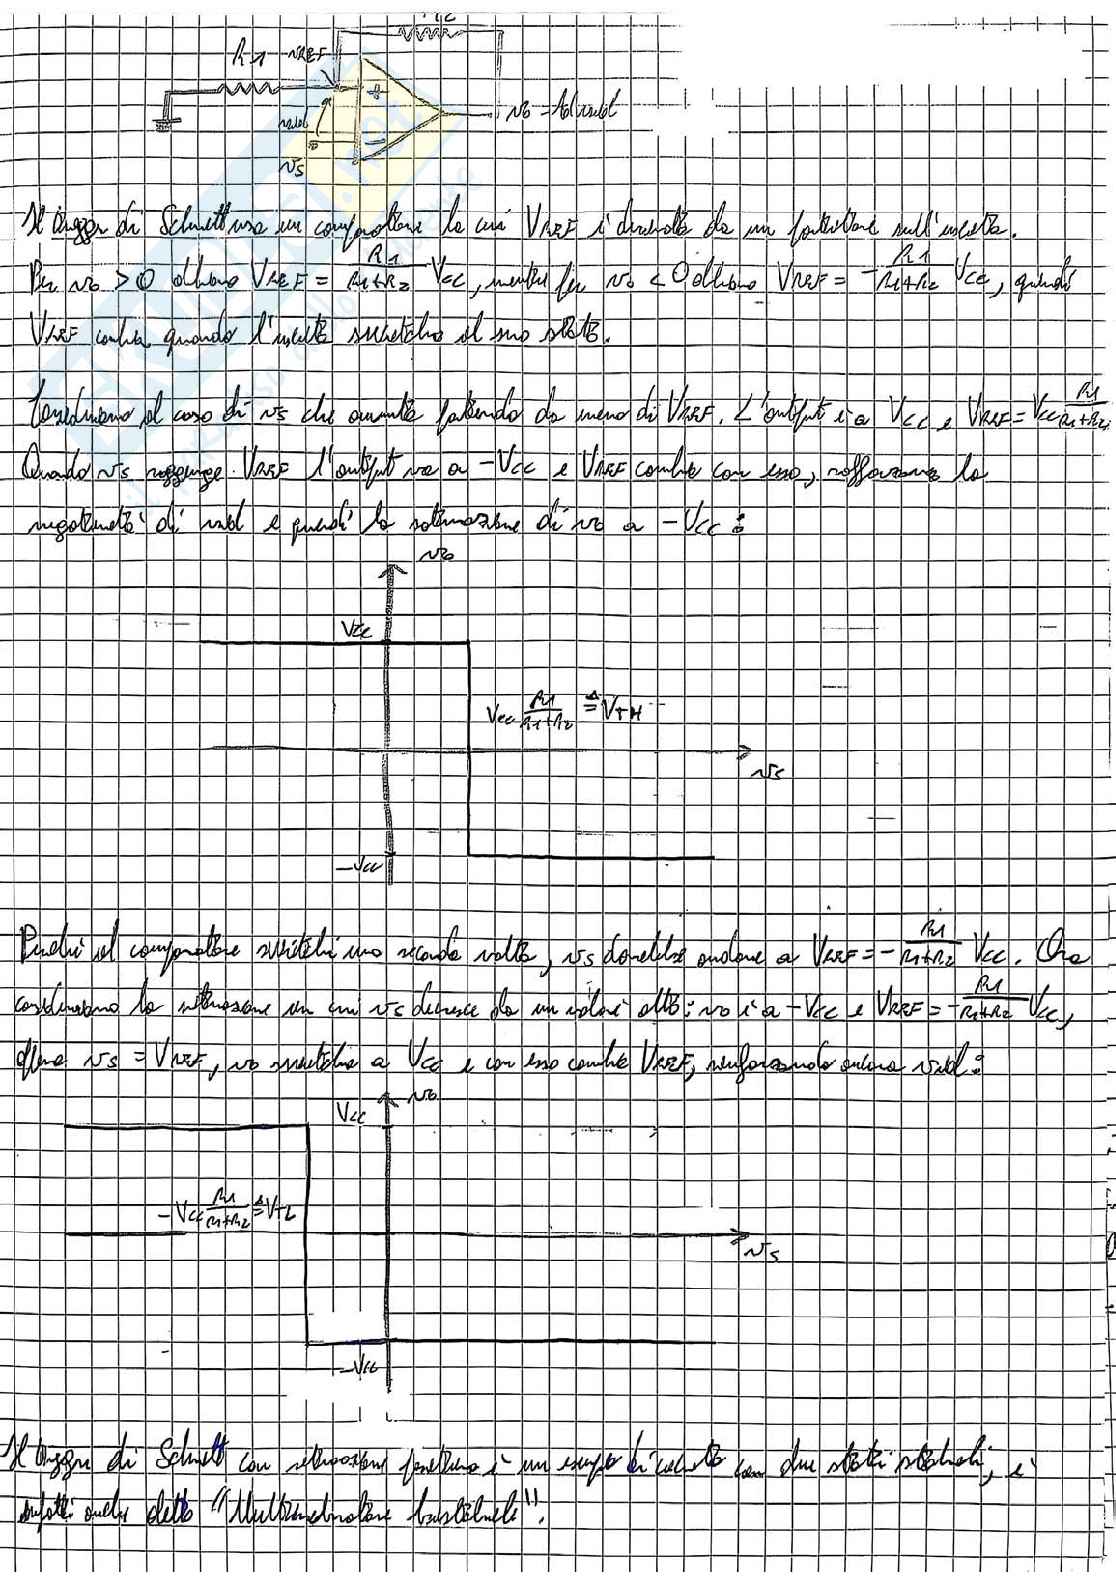 R1 vREF
R2
vid
vS
vo = Ad vid
Il trigger di Schmitt usa un comparatore la cui VREF è derivata da un partitore sull'uscita.
Per vo > 0 abbiamo VREF = R1/(R1+R2) VCC, mentre per vo < 0 abbiamo VREF = - R1/(R1+R2) VCC, quindi
VREF cambia quando l'uscita switcha il suo stato.
Consideriamo il caso di vs che aumenta partendo da meno di VREF. L'output è a VCC e VREF = VCC R1/(R1+R2)
Quando vs raggiunge VREF l'output va a -VCC e VREF cambia con esso, rafforzando la
negatività di vid e quindi la saturazione di vo a -VCC:
vo
VCC
VCC R1/(R1+R2) ≜ VTH
vs
-VCC
Perché il comparatore switchi una seconda volta, vs dovrebbe andare a VREF = - R1/(R1+R2) VCC. Ora
consideriamo la situazione in cui vs decresce da un valore alto: vo è a -VCC e VREF = - R1/(R1+R2) VCC,
vs = VREF, vo switcha a VCC e con esso cambia VREF, rinforzando ancora vid:
vo
VCC
- VCC R1/(R1+R2) ≜ VTL
vs
-VCC
Il trigger di Schmitt con retroazione positiva è un esempio di circuito con due stati stabili, è
infatti anche detto "Multivibratore bistabile".